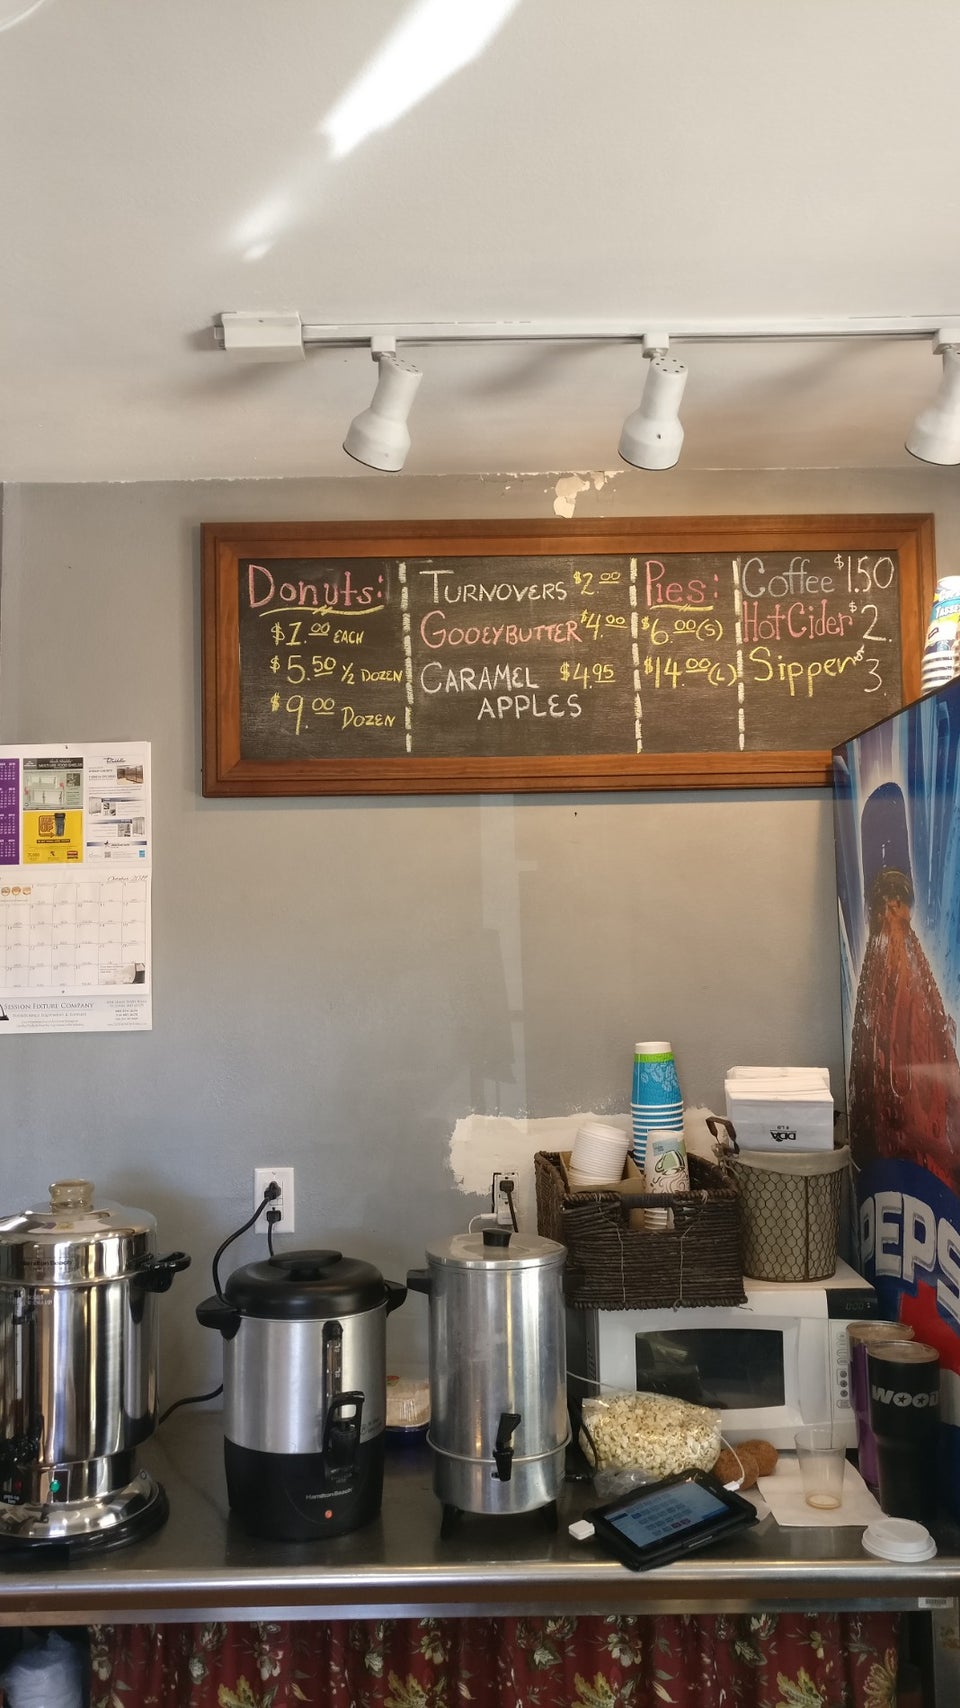 Donuts:
$1.00 EACH
$5.50 1/2 DOZEN
$9.00 DOZEN
TURNOVERS $2.00
GOOEYBUTTER $4.00
CARAMEL $4.95
APPLES
Pies:
$6.00(S)
$14.00(L)
Coffee $1.50
Hot Cider $2.
Sipper 3.
October
SESSION FIXTURE COMPANY
DDA
PEPS
HamiltonBeach
WOOD